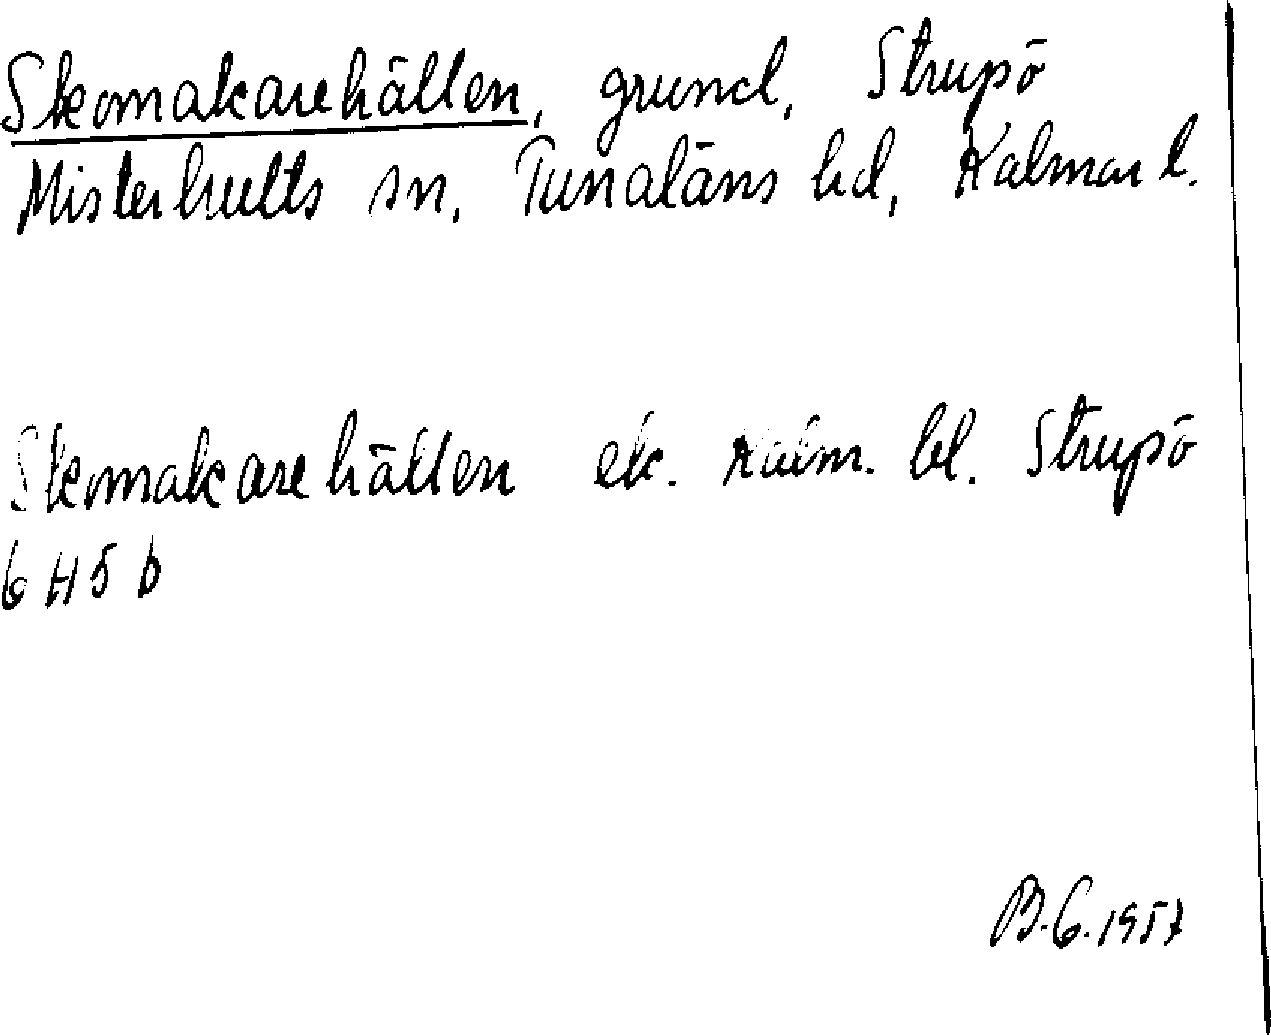 Skomakarehällen, grund, Strupö
Misterhults sn, Tunaläns hd, Kalmar l.
Skomakarehällen ek. Kalm. bl. Strupö
6 H 5 b
B.G. 1957